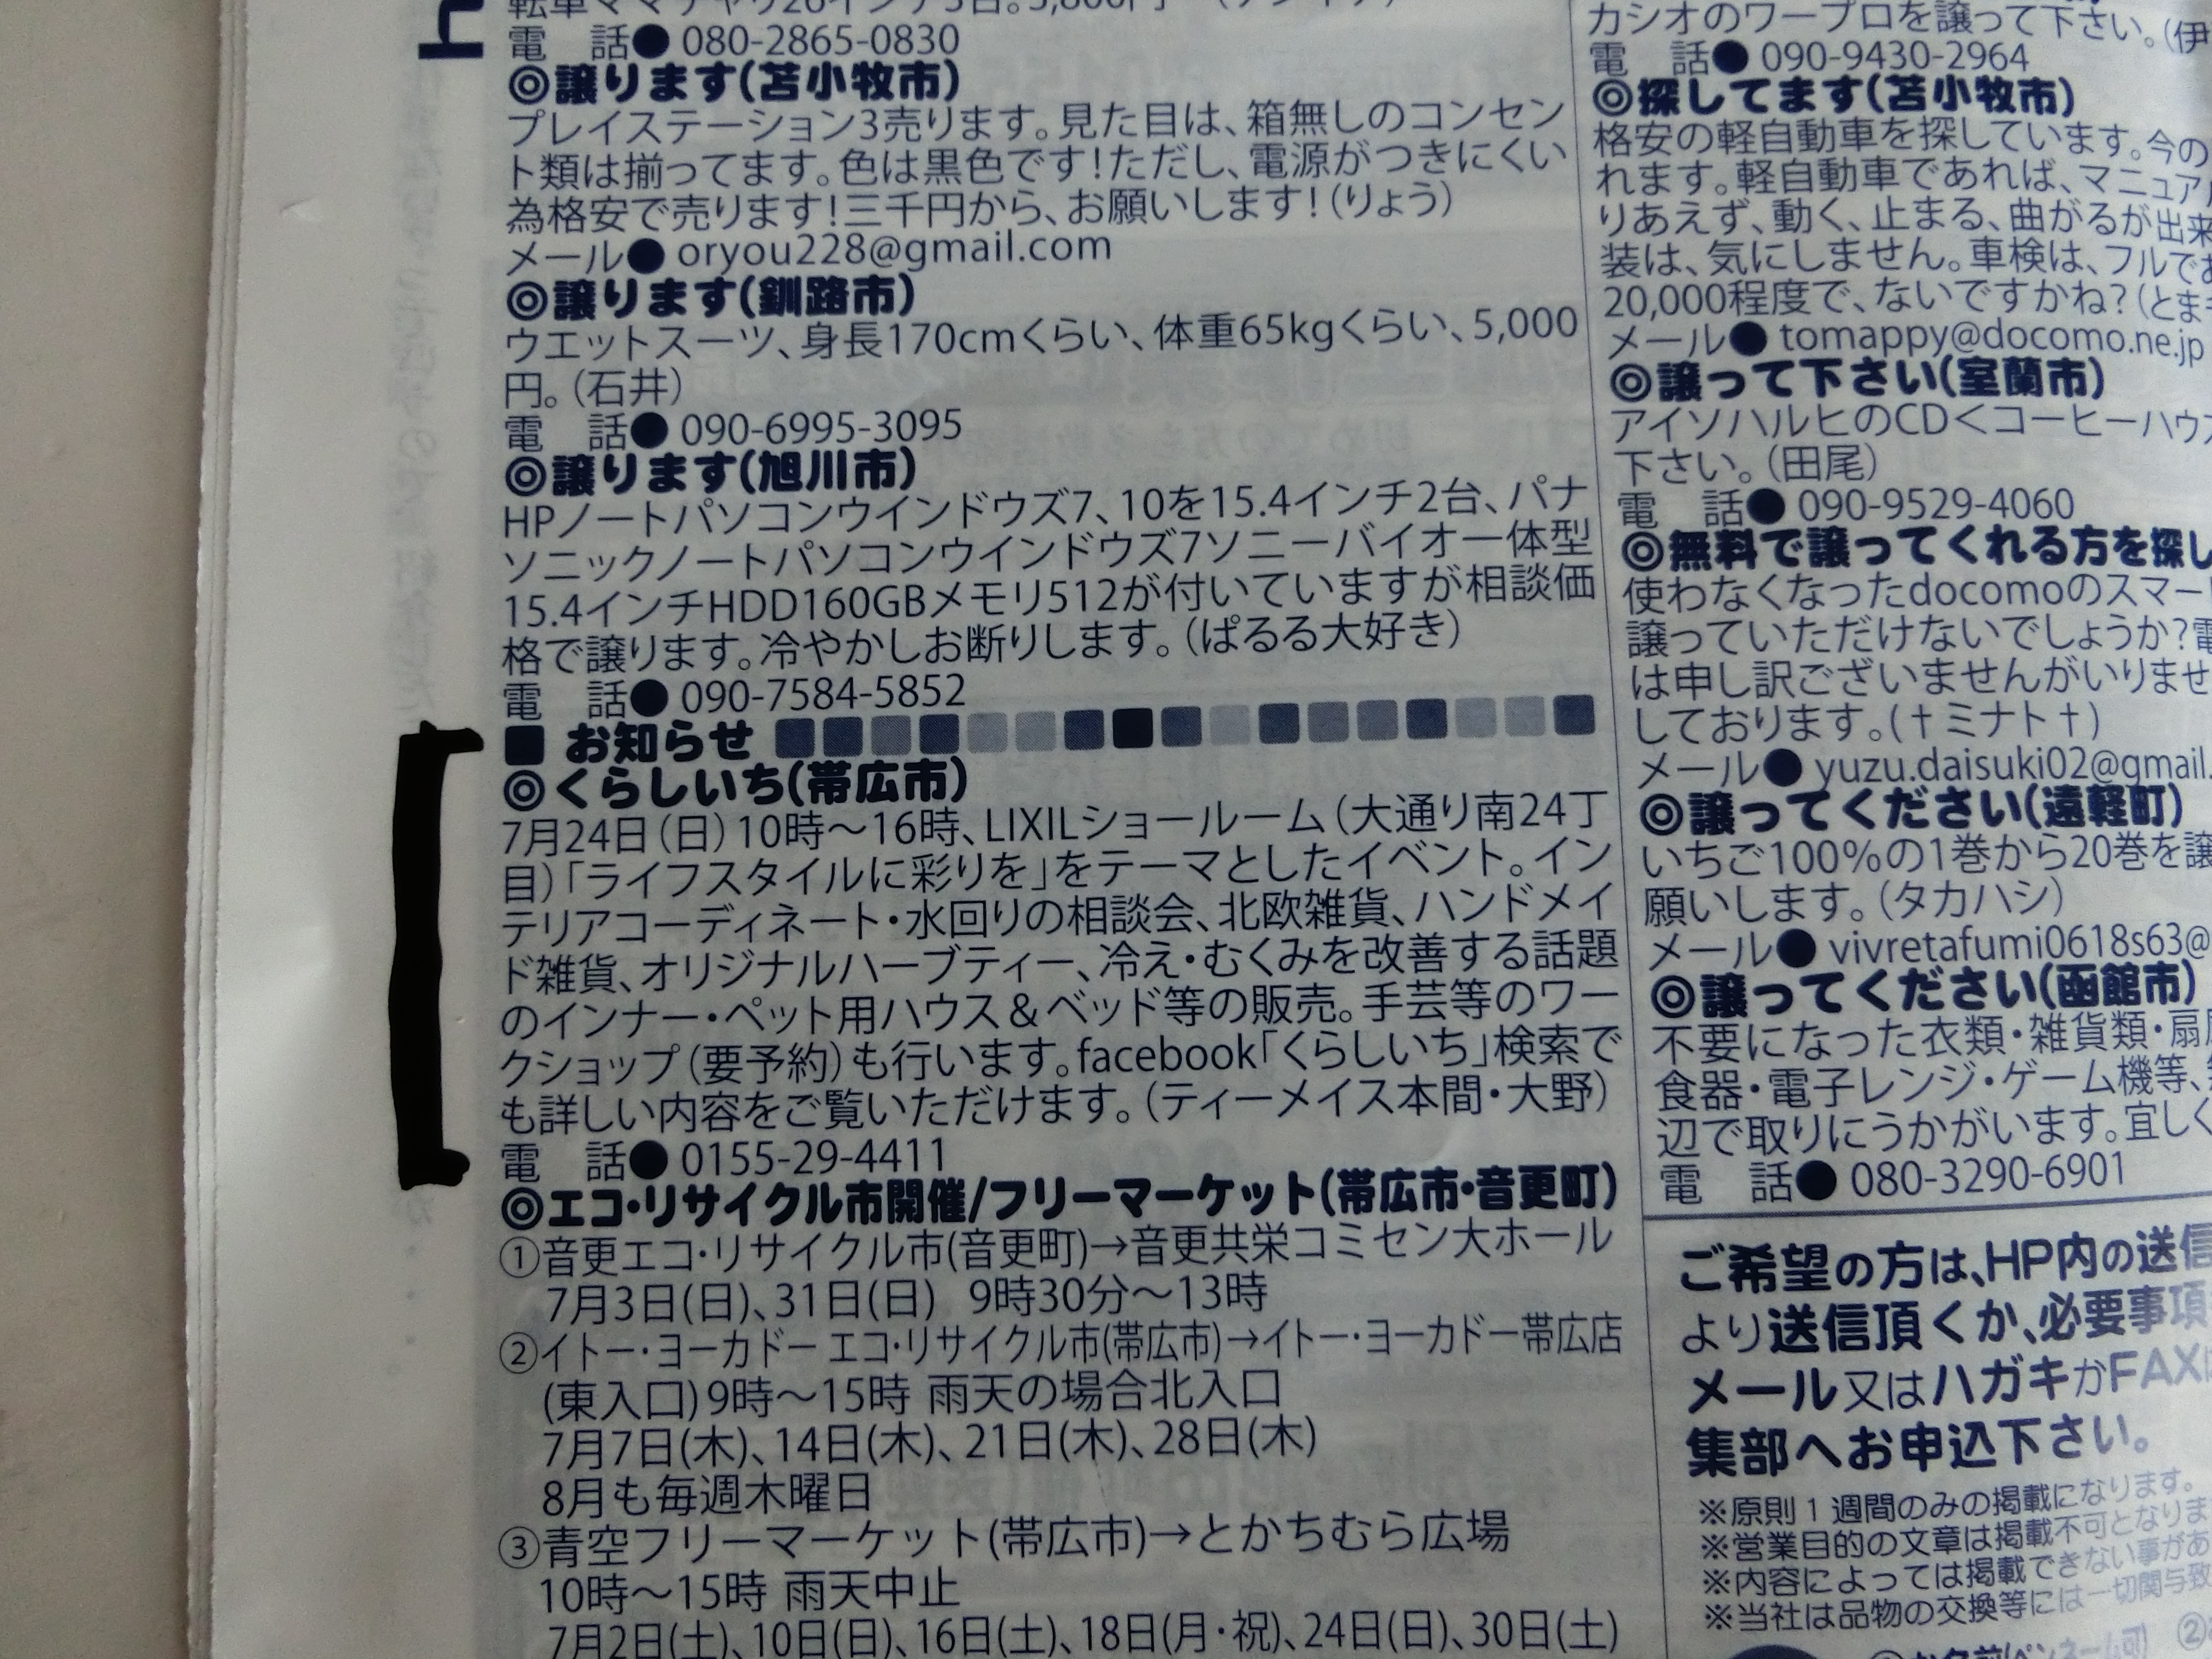 電　話● 080-2865-0830
◎譲ります(苫小牧市)
プレイステーション3売ります。見た目は、箱無しのコンセン
ト類は揃ってます。色は黒色です!ただし、電源がつきにくい
為格安で売ります!三千円から、お願いします!(りょう)
メール● oryou228@gmail.com
◎譲ります(釧路市)
ウエットスーツ、身長170cmくらい、体重65kgくらい、5,000
円。(石井)
電　話● 090-6995-3095
◎譲ります(旭川市)
HPノートパソコンウインドウズ7、10を15.4インチ2台、パナ
ソニックノートパソコンウインドウズ7ソニーバイオ一体型
15.4インチHDD160GBメモリ512が付いていますが相談価
格で譲ります。冷やかしお断りします。(ぱるる大好き)
電　話● 090-7584-5852
■ お知らせ
◎くらしいち(帯広市)
7月24日(日)10時～16時、LIXILショールーム(大通り南24丁
目)「ライフスタイルに彩りを」をテーマとしたイベント。イン
テリアコーディネート・水回りの相談会、北欧雑貨、ハンドメイ
ド雑貨、オリジナルハーブティー、冷え・むくみを改善する話題
のインナー・ペット用ハウス&ベッド等の販売。手芸等のワー
クショップ(要予約)も行います。facebook「くらしいち」検索で
も詳しい内容をご覧いただけます。(ティーメイス本間・大野)
電　話● 0155-29-4411
◎エコ・リサイクル市開催/フリーマーケット(帯広市・音更町)
①音更エコ・リサイクル市(音更町)→音更共栄コミセン大ホール
7月3日(日)、31日(日) 9時30分～13時
②イトー・ヨーカドー エコ・リサイクル市(帯広市)→イトー・ヨーカドー帯広店
(東入口)9時～15時 雨天の場合北入口
7月7日(木)、14日(木)、21日(木)、28日(木)
8月も毎週木曜日
③青空フリーマーケット(帯広市)→とかちむら広場
10時～15時 雨天中止
7月2日(土)、10日(日)、16日(土)、18日(月・祝)、24日(日)、30日(土)
カシオのワープロを譲って下さい。(伊
電　話● 090-9430-2964
◎探してます(苫小牧市)
格安の軽自動車を探しています。今の
れます。軽自動車であれば、マニュア
りあえず、動く、止まる、曲がるが出来
装は、気にしません。車検は、フルで
20,000程度で、ないですかね?(とま
メール● tomappy@docomo.ne.jp
◎譲って下さい(室蘭市)
アイソハルヒのCD<コーヒーハウ
下さい。(田尾)
電　話● 090-9529-4060
◎無料で譲ってくれる方を探し
使わなくなったdocomoのスマー
譲っていただけないでしょうか?電
は申し訳ございませんがいりませ
しております。(†ミナト†)
メール● yuzu.daisuki02@gmail.
◎譲ってください(遠軽町)
いちご100%の1巻から20巻を譲
願いします。(タカハシ)
メール● vivretafumi0618s63@
◎譲ってください(函館市)
不要になった衣類・雑貨類・扇
食器・電子レンジ・ゲーム機等、
辺で取りにうかがいます。宜しく
電　話● 080-3290-6901
ご希望の方は、HP内の送信
より送信頂くか、必要事項
メール又はハガキかFAX
集部へお申込下さい。
※原則1週間のみの掲載になります。
※営業目的の文章は掲載不可となりま
※内容によっては掲載できない事があ
※当社は品物の交換等には一切関与致